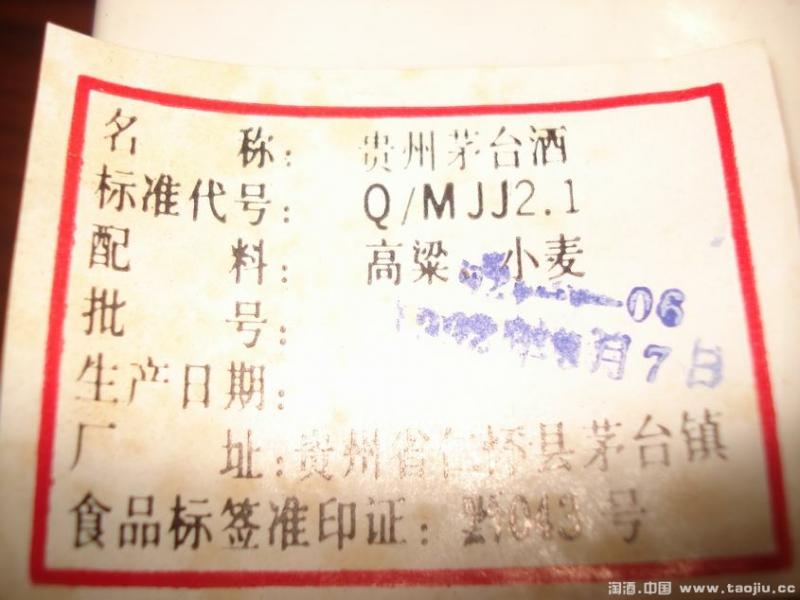 名 称: 贵州茅台酒
标准代号: Q/MJJ2.1
配 料: 高粱、小麦
批 号: 06
生产日期: 月7日
厂 址: 贵州省仁怀县茅台镇
食品标签准印证: 043 号
淘酒.中国 www.taojiu.cc